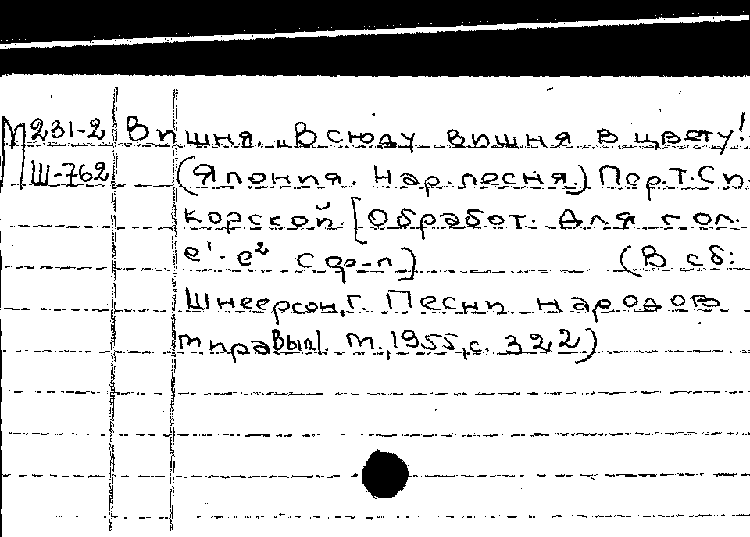 М231-2 Вишня. „Всюду вишня в цвету!
Ш-762 (Япония. Нар. песня.) Пер. Т. Си
корской. [Обработ. для гол.
e¹-e² с ф-п] (В сб:
Шнеерсон, Г. Песни народов
мира Вып1. М, 1955, с. 322)